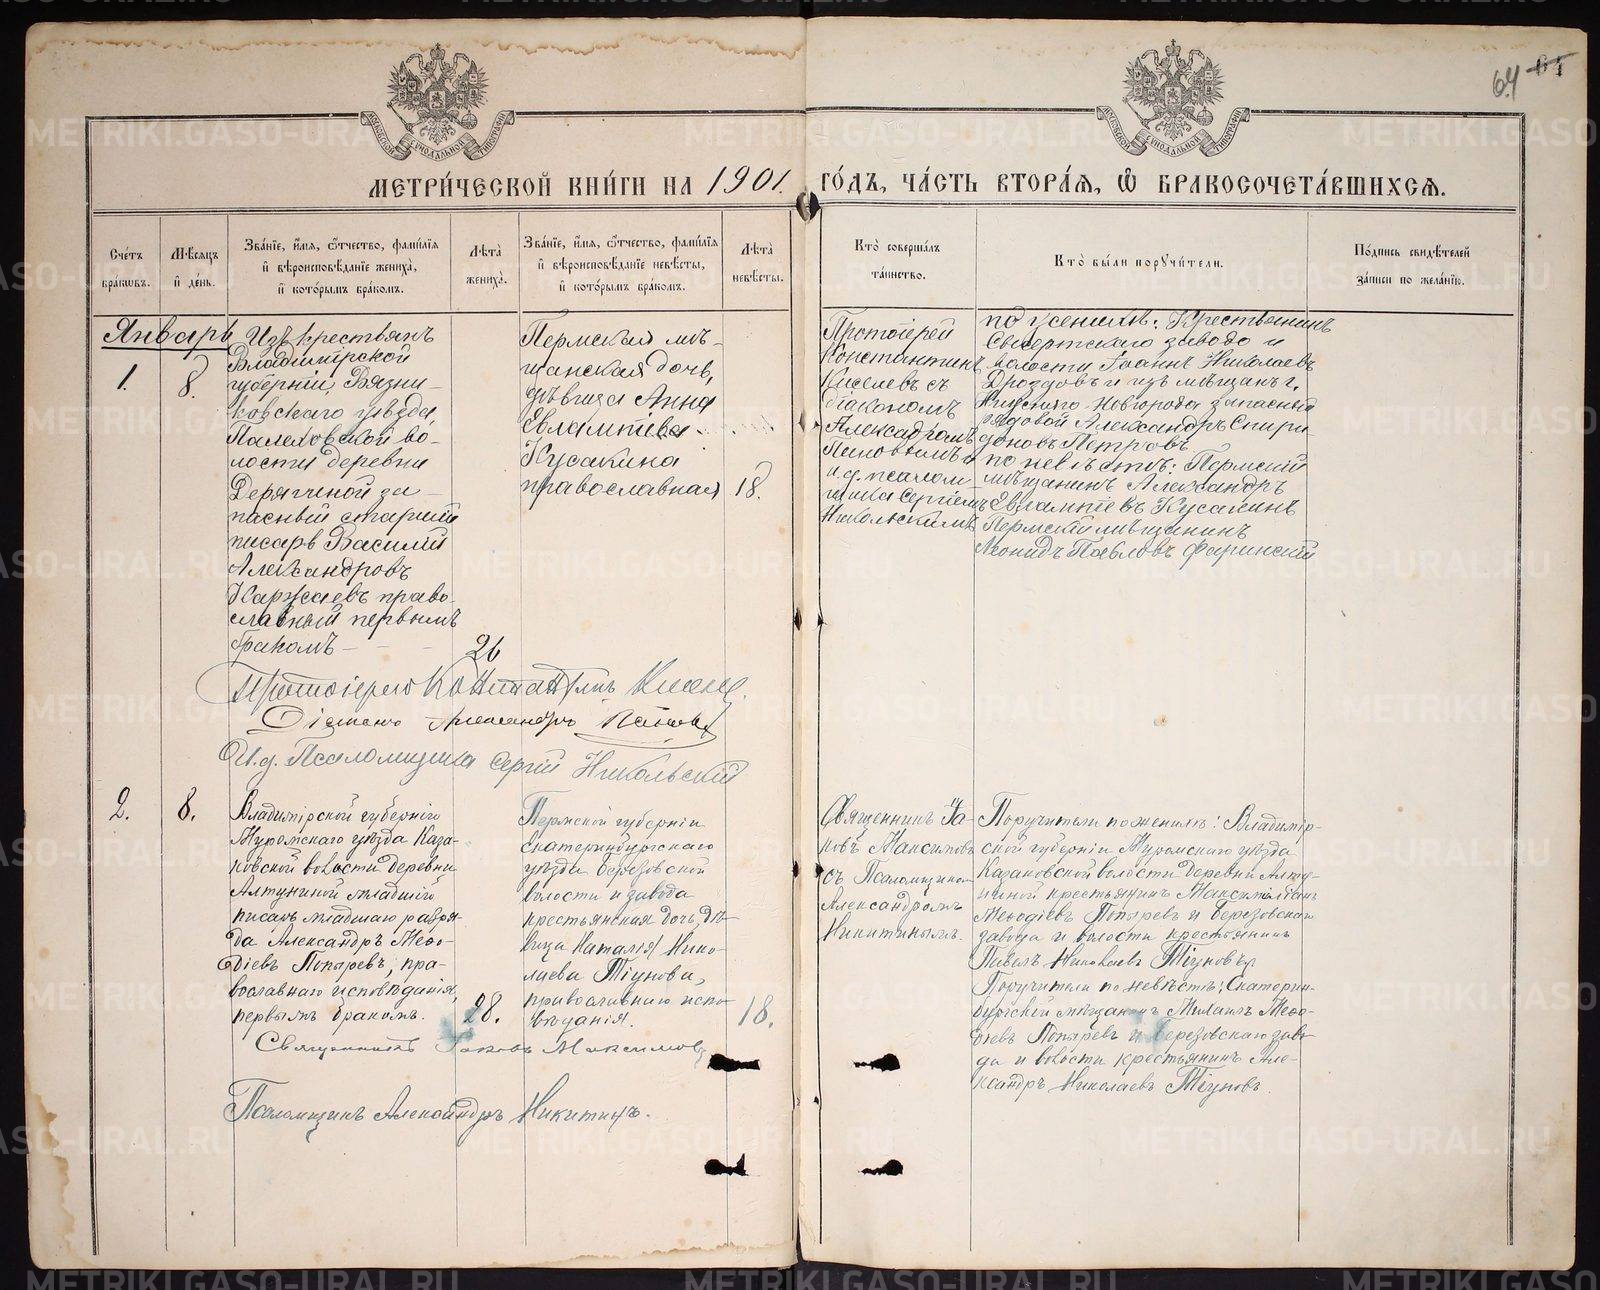 64 61
МЕТРИ́ЧЕСКОЙ КНИ́ГИ НА 1901. ГО́ДЪ, ЧА́СТЬ ВТОРА́Я, Ѽ БРАКОСОЧЕТА́ВШИХСѦ.
Сче́тъ бра́кѡвъ.
Мѣ́сѧцъ и҆ де́нь.
Зва́нїе, и҆́мѧ, ѻ҆́тчество, фами́лїѧ и҆ вѣроисповѣ́данїе жениха̀, и҆ кото́рымъ бра́комъ.
Лѣ́та̀ жениха̀.
Зва́нїе, и҆́мѧ, ѻ҆́тчество, фами́лїѧ и҆ вѣроисповѣ́данїе невѣ́сты, и҆ кото́рымъ бра́комъ.
Лѣ́та̀ невѣ́сты.
Кто̀ соверша́лъ та́инство.
Кто̀ бы́ли порꙋчи́тели.
По́дпись свидѣ́телей за́писи по жела́нїю.
Январь
1.
8.
Изъ крестьянъ
Владимірской
губерніи, Вязни-
ковскаго уѣзда,
Палеховской во-
лости деревни
Дерягиной за-
пасный старшій
писарь Василій
Александровъ
Каржаевъ право-
славный первымъ
бракомъ
26
Пермская мѣ-
щанская дочь,
дѣвица Анна
Евлампіева
Кусакина
православная
18.
Протоіерей
Константинъ
Киселевъ съ
діакономъ
Александромъ
и.д. псалом-
щика Сергіемъ
Никольскимъ
по женихѣ: Крестьянинъ
Сысертскаго завода и
волости Іоаннъ Николаевъ
Дроздовъ и изъ мѣщанъ г.
Нижняго-Новгорода запасный
рядовой Александръ Спири-
доновъ Петровъ
по невѣстѣ: Пермскій
мѣщанинъ Александръ
Евлампіевъ Кусакинъ
Пермскій мѣщанинъ
Леонидъ Павловъ Фаринскій
Протоіерей Константинъ Киселев.
Діаконъ Александръ
И.д. Псаломщика Сергій Никольскій
2.
8.
Владимірской губерніи
Муромскаго уѣзда Каза-
ковской волости деревни
Алтуниной младшій
писарь младшаго разря-
да Александръ Меѳо-
діевъ Попыревъ, пра-
вославнаго исповѣданія,
первымъ бракомъ.
28.
Пермской губерніи
Екатеринбургскаго
уѣзда Березовской
волости и завода
крестьянская дочь, дѣ-
вица Наталія Нико-
лаева Тіунова,
православнаго испо-
вѣданія.
18.
Священникъ Іа-
ковъ Максимовъ
съ Псаломщикомъ
Александромъ
Никитинымъ.
Поручители по женихѣ: Владимір-
ской губерніи Муромскаго уѣзда
Казаковской волости деревни Алту-
ниной крестьянинъ Максимиліанъ
Меѳодіевъ Попыревъ и Березовскаго
завода и волости крестьянинъ
Павелъ Николаевъ Тіуновъ;
Поручители по невѣстѣ: Екатерин-
бургскій мѣщанинъ Михаилъ Меѳо-
діевъ Попыревъ и Березовскаго заво-
да и волости крестьянинъ Але-
ксандръ Николаевъ Тіуновъ.
Священникъ Іаковъ Максимовъ
Псаломщикъ Александръ Никитинъ.
METRIKI.GASO-URAL.RU